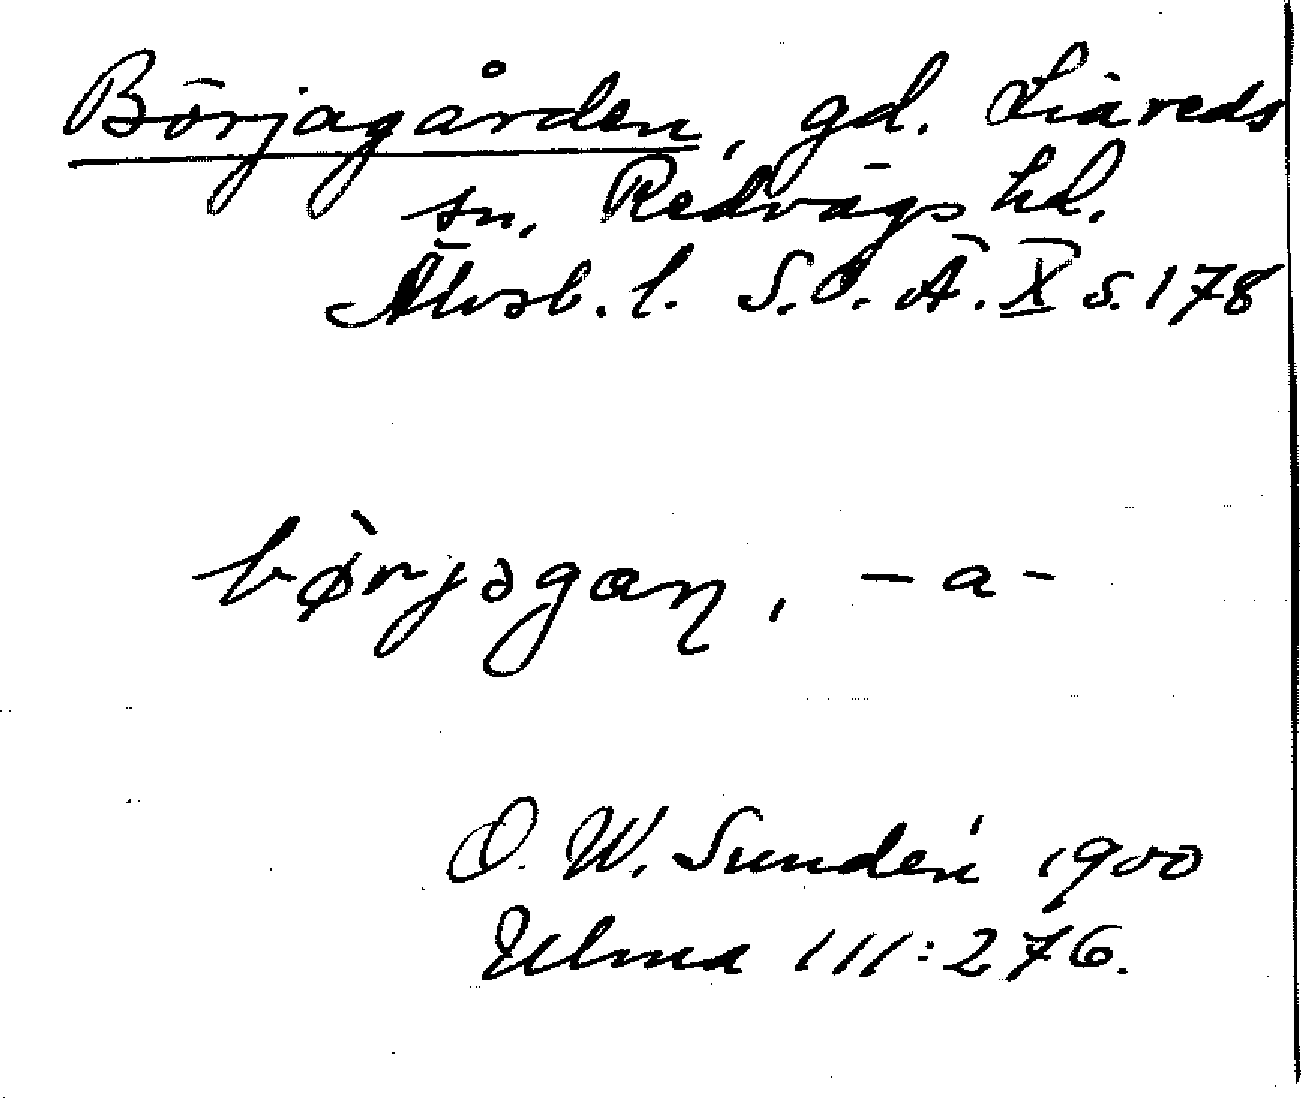 Börjagården, gd. Liareds
sn, Redvägs hd.
Älvsb. l. S.O.Ä. X s. 178
bø̀rjəgaɳ, -a-
D. W. Sundén 1900
Ulma 111:276.